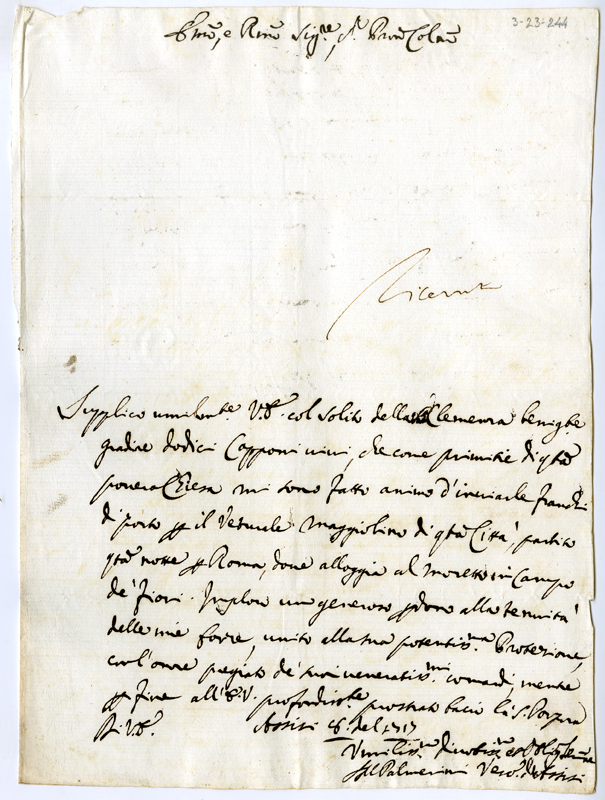 3-23-244
Emõ, e Rmõ Sigre, Sr Prõn Colmõ
Ricevuta
Supplico umilmte V.E. col solito della sua Clemenza benigte
gradire dodici Capponi vivi, che come primitie di qta
povera Chiesa mi sono fatto animo d'inviarle franchi
di porto p il Vetturale Maggiolino di qta Città, partito
qta notte p Roma, dove alloggia al Moretto in Campo
de' fiori. Imploro un generoso pdono alla tenuità
delle mie forze, unito alla sua potentissma Protezione,
con l'onre pregiato de' suoi veneratissmi comandi, mentre
p fine all'E.V. profondiste prostrato bacio la S. Porpora
Di V.E.
Assisi 18 del 1717
Umilissmo Divotissmo et Obligmo Sre
Palmerini Veso d'Assisi